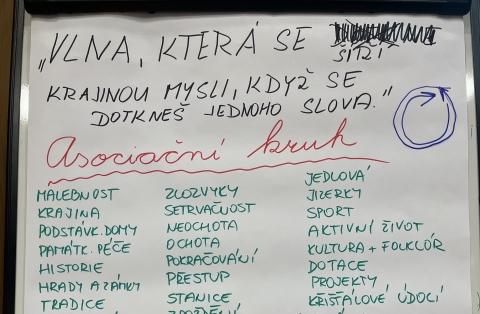 „VLNA, KTERÁ SE
ŠÍŘÍ
KRAJINOU MYSLI, KDYŽ SE
DOTKNEŠ JEDNOHO SLOVA."
Asociační kruh
MALEBNOST
KRAJINA
PODSTÁVK. DOMY
PAMÁTK. PÉČE
HISTORIE
HRADY A ZÁMKY
TRADICE
ZLOZVYKY
SETRVAČNOST
NEOCHOTA
OCHOTA
POKRAČOVÁNÍ
PŘESTUP
STANICE
ZPOŽDĚNÍ
JEDLOVÁ
JIZERKY
SPORT
AKTIVNÍ ŽIVOT
KULTURA + FOLKLÓR
DOTACE
PROJEKTY
KŘIŠŤÁLOVÉ ÚDOLÍ